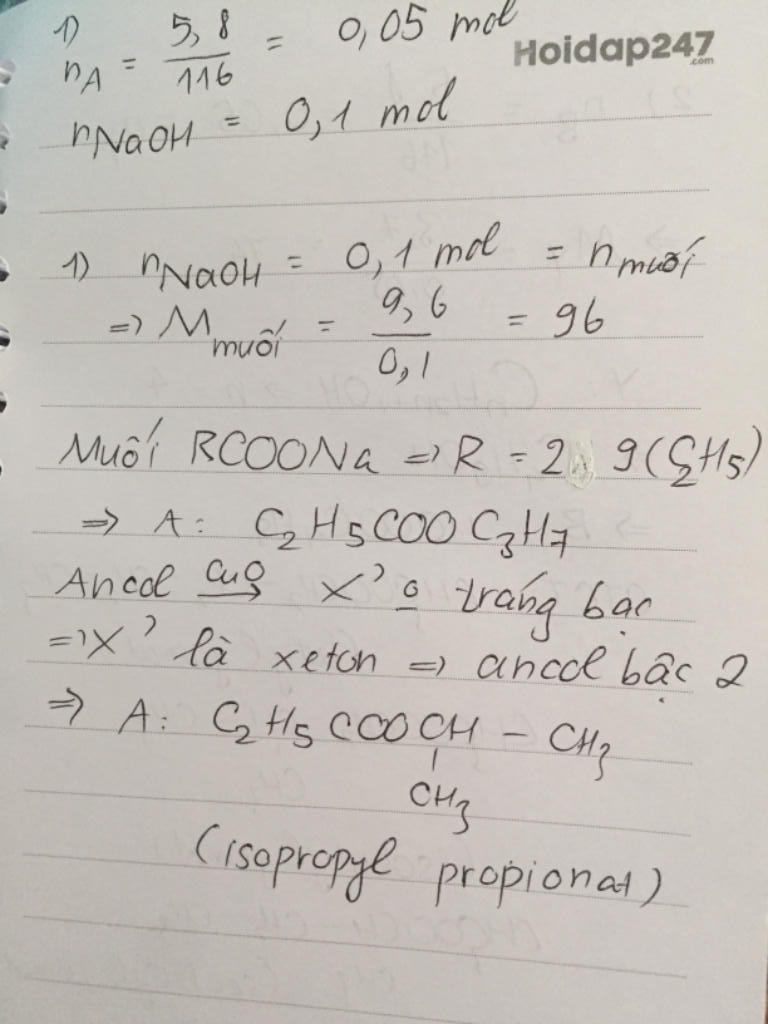 1)
nA = 5,8 / 116 = 0,05 mol
Hoidap247
.com
nNaOH = 0,1 mol
1) nNaOH = 0,1 mol = nmuối
=> Mmuối = 9,6 / 0,1 = 96
Muối RCOONa => R = 29 (C2H5)
=> A: C2H5COOC3H7
Ancol CuO→ X' o tráng bạc
=> X' là xeton => ancol bậc 2
=> A: C2H5COOCH - CH3
|
CH3
(isopropyl propionat)